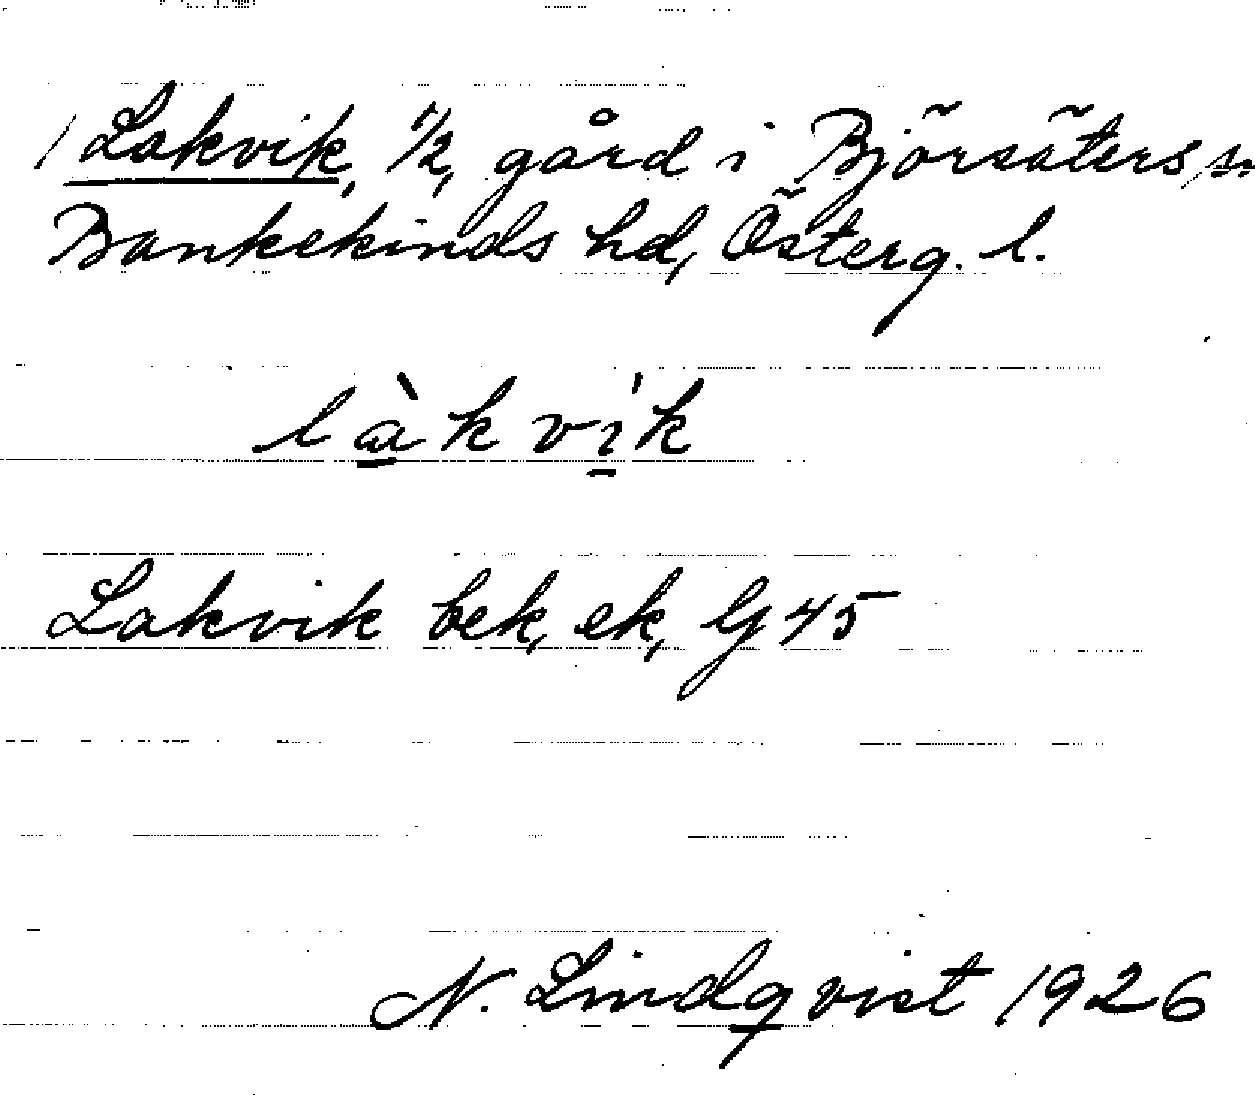 / Lakvik, 1/2, gård i Björsäters sn
Bankekinds hd, Österg. l.
làkvìk
Lakvik bek, ek, G 45
N. Lindqvist 1926